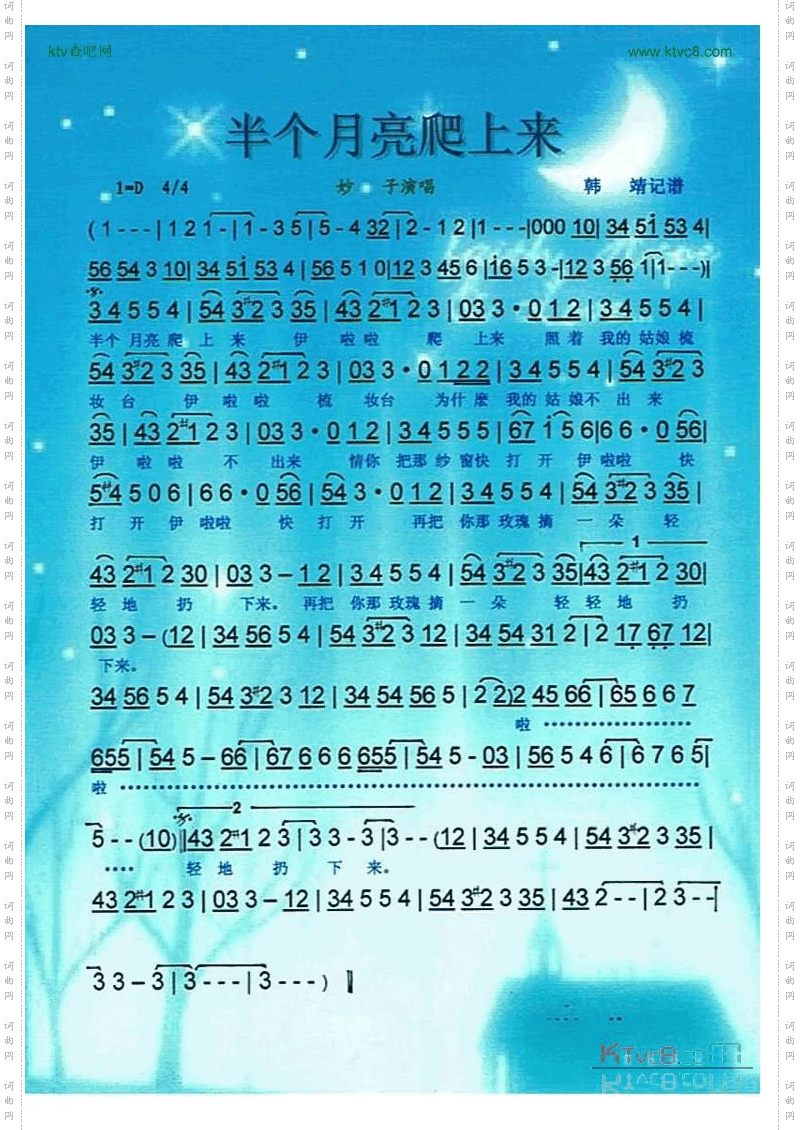 ktv查吧网 www.ktvc8.com
半个月亮爬上来
1=D 4/4 妙 子演唱 韩 靖记谱
( 1 - - - | 1 2 1 - | 1 - 3 5 | 5 - 4 32 | 2 - 1 2 | 1 - - - | 000 10 | 34 51 53 4 |
56 54 3 10 | 34 51 53 4 | 56 5 1 0 | 12 3 45 6 | 16 5 3 - | 12 3 56 1 | 1 - - - ) |
3 4 5 5 4 | 54 3#2 3 35 | 43 2#1 2 3 | 03 3 · 0 1 2 | 3 4 5 5 4 |
半个 月亮 爬 上 来 伊 啦 啦 爬 上来 照 着 我的 姑娘 梳
54 3#2 3 35 | 43 2#1 2 3 | 03 3 · 0 1 2 2 | 3 4 5 5 4 | 54 3#2 3
妆 台 伊 啦 啦 梳 妆台 为什 麽 我的 姑 娘不 出 来
35 | 43 2#1 2 3 | 03 3 · 0 1 2 | 3 4 5 5 5 | 67 1 5 6 | 6 6 · 0 56 |
伊 啦 啦 不 出来 情你 把那 纱 窗快 打 开 伊 啦啦 快
5#4 5 0 6 | 6 6 · 0 56 | 54 3 · 0 1 2 | 3 4 5 5 4 | 54 3#2 3 35 |
打 开 伊 啦啦 快 打 开 再把 你那 玫瑰 摘 一 朵 轻
1
43 2#1 2 30 | 03 3 – 1 2 | 3 4 5 5 4 | 54 3#2 3 35 | 43 2#1 2 30 |
轻 地 扔 下来。 再把 你那 玫瑰 摘 一 朵 轻 轻 地 扔
03 3 – (12 | 34 56 5 4 | 54 3#2 3 12 | 34 54 31 2 | 2 17 67 12 |
下来。
34 56 5 4 | 54 3#2 3 12 | 34 54 56 5 | 2 2) 2 45 66 | 65 6 6 7
啦 ………………
655 | 54 5 – 66 | 67 6 6 6 655 | 54 5 - 03 | 56 5 4 6 | 6 7 6 5 |
啦 ………………………………
2
5 - - (10) || 43 2#1 2 3 | 3 3 - 3 | 3 - - (12 | 34 5 5 4 | 54 3#2 3 35 |
…… 轻 地 扔 下 来。
43 2#1 2 3 | 03 3 – 12 | 34 5 5 4 | 54 3#2 3 35 | 43 2 - - | 2 3 - - |
3 3 – 3 | 3 - - - | 3 - - - ) ‖
KTvc8.
词曲网